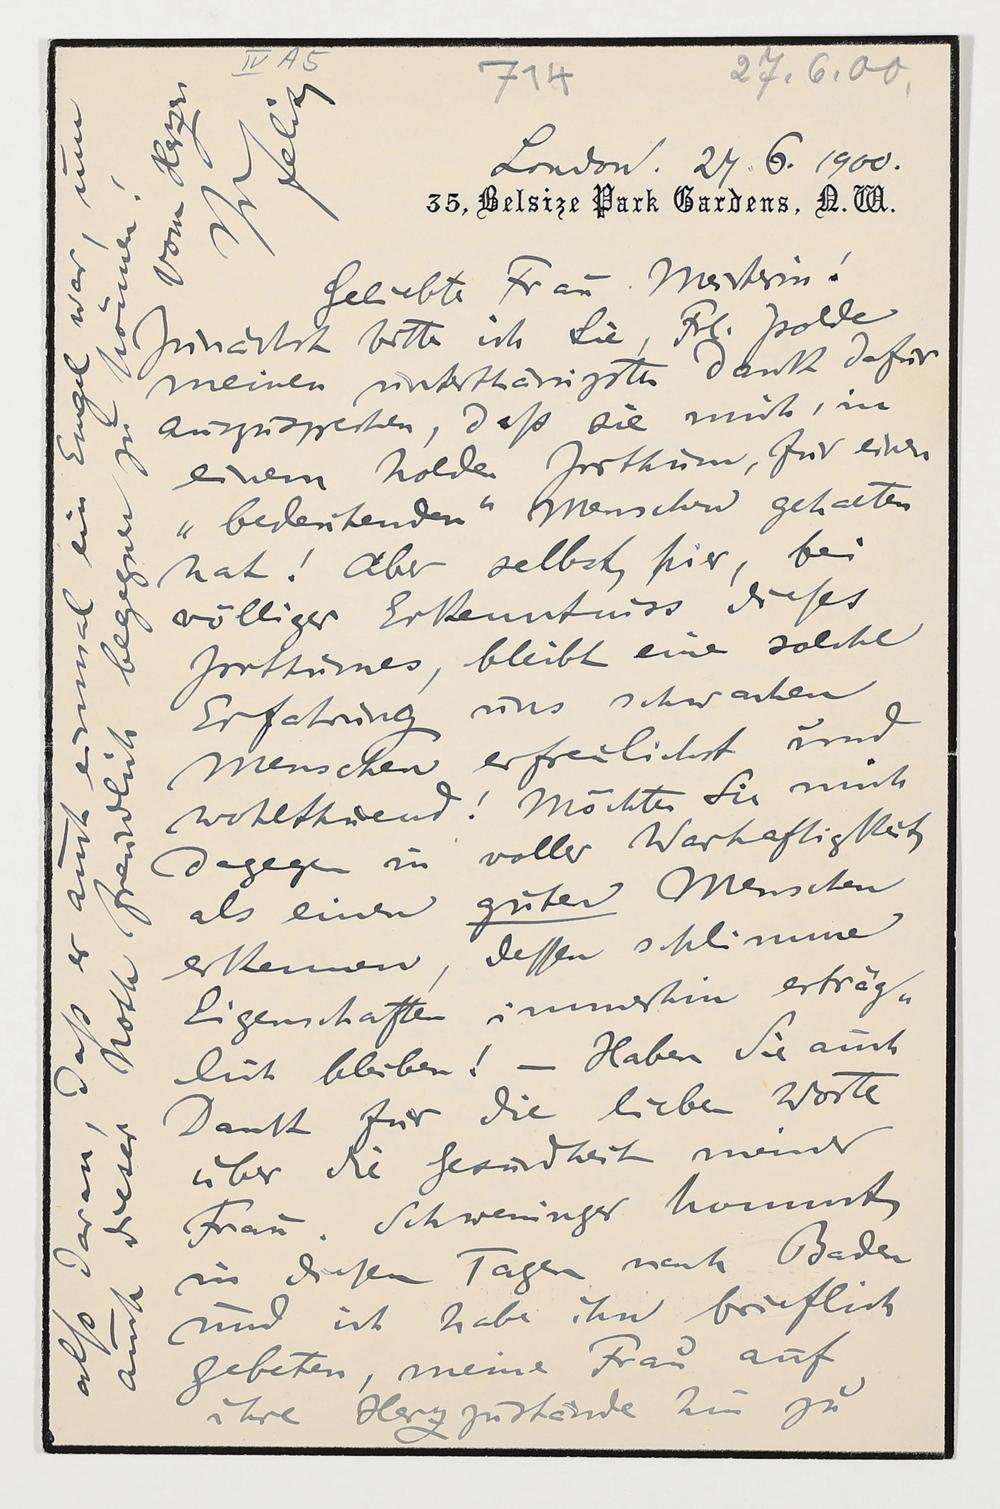 IV A 5
714
27.6.00.
London. 27. 6. 1900.
35, Belsize Park Gardens, N.W.
Geliebte Frau Meisterin!
Zunächst bitte ich Sie, Frl. Isolde
meinen unterthänigsten Dank dafür
auszusprechen, daß sie mich, in
einem holden Irrthum, für einen
„bedeutenden“ Menschen gehalten
hat! Aber selbst hier, bei
völliger Erkenntniss dieses
Irrthumes, bleibt eine solche
Erfahrung uns schwachen
Menschen erfreulichst und
wohlthuend! Möchten Sie mich
dagegen in voller Warhaftigkeit
als einen guten Menschen
erkennen, dessen schlimme
Eigenschaften immerhin erträg„
lich bleiben! – Haben Sie auch
Dank für die lieben Worte
über die Gesundheit meiner
Frau. Schweninger kommt
in diesen Tagen nach Baden
und ich habe ihn brieflich
gebeten, meine Frau auf
ihre Herzzustände hin zu
also daran, daß er auch einmal ein Engel war, um
auch dieser Noth freundlich begegnen zu können!
Vom Herzen
Ihr
Felix